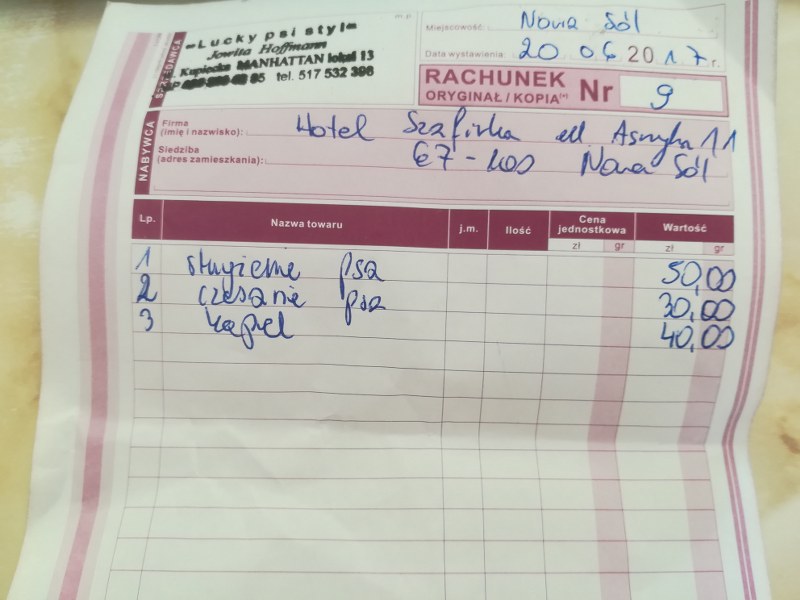 m.p.
SPRZEDAWCA
"Lucky psi styl"
Jowita Hoffmann
Kupiecka MANHATTAN lokal 13
tel. 517 532 398
Miejscowość: Nowa Sól
Data wystawienia: 20 06 2017 r.
RACHUNEK
ORYGINAŁ / KOPIA(*) Nr 9
NABYWCA
Firma
(imię i nazwisko): Hotel Szafirka ul Asnyka 11
Siedziba
(adres zamieszkania): 67-100 Nowa Sól
Lp. Nazwa towaru j.m. Ilość Cena jednostkowa Wartość
zł gr zł gr
1 stwyżenie psa 50,00
2 czesanie psa 30,00
3 kąpiel 40,00